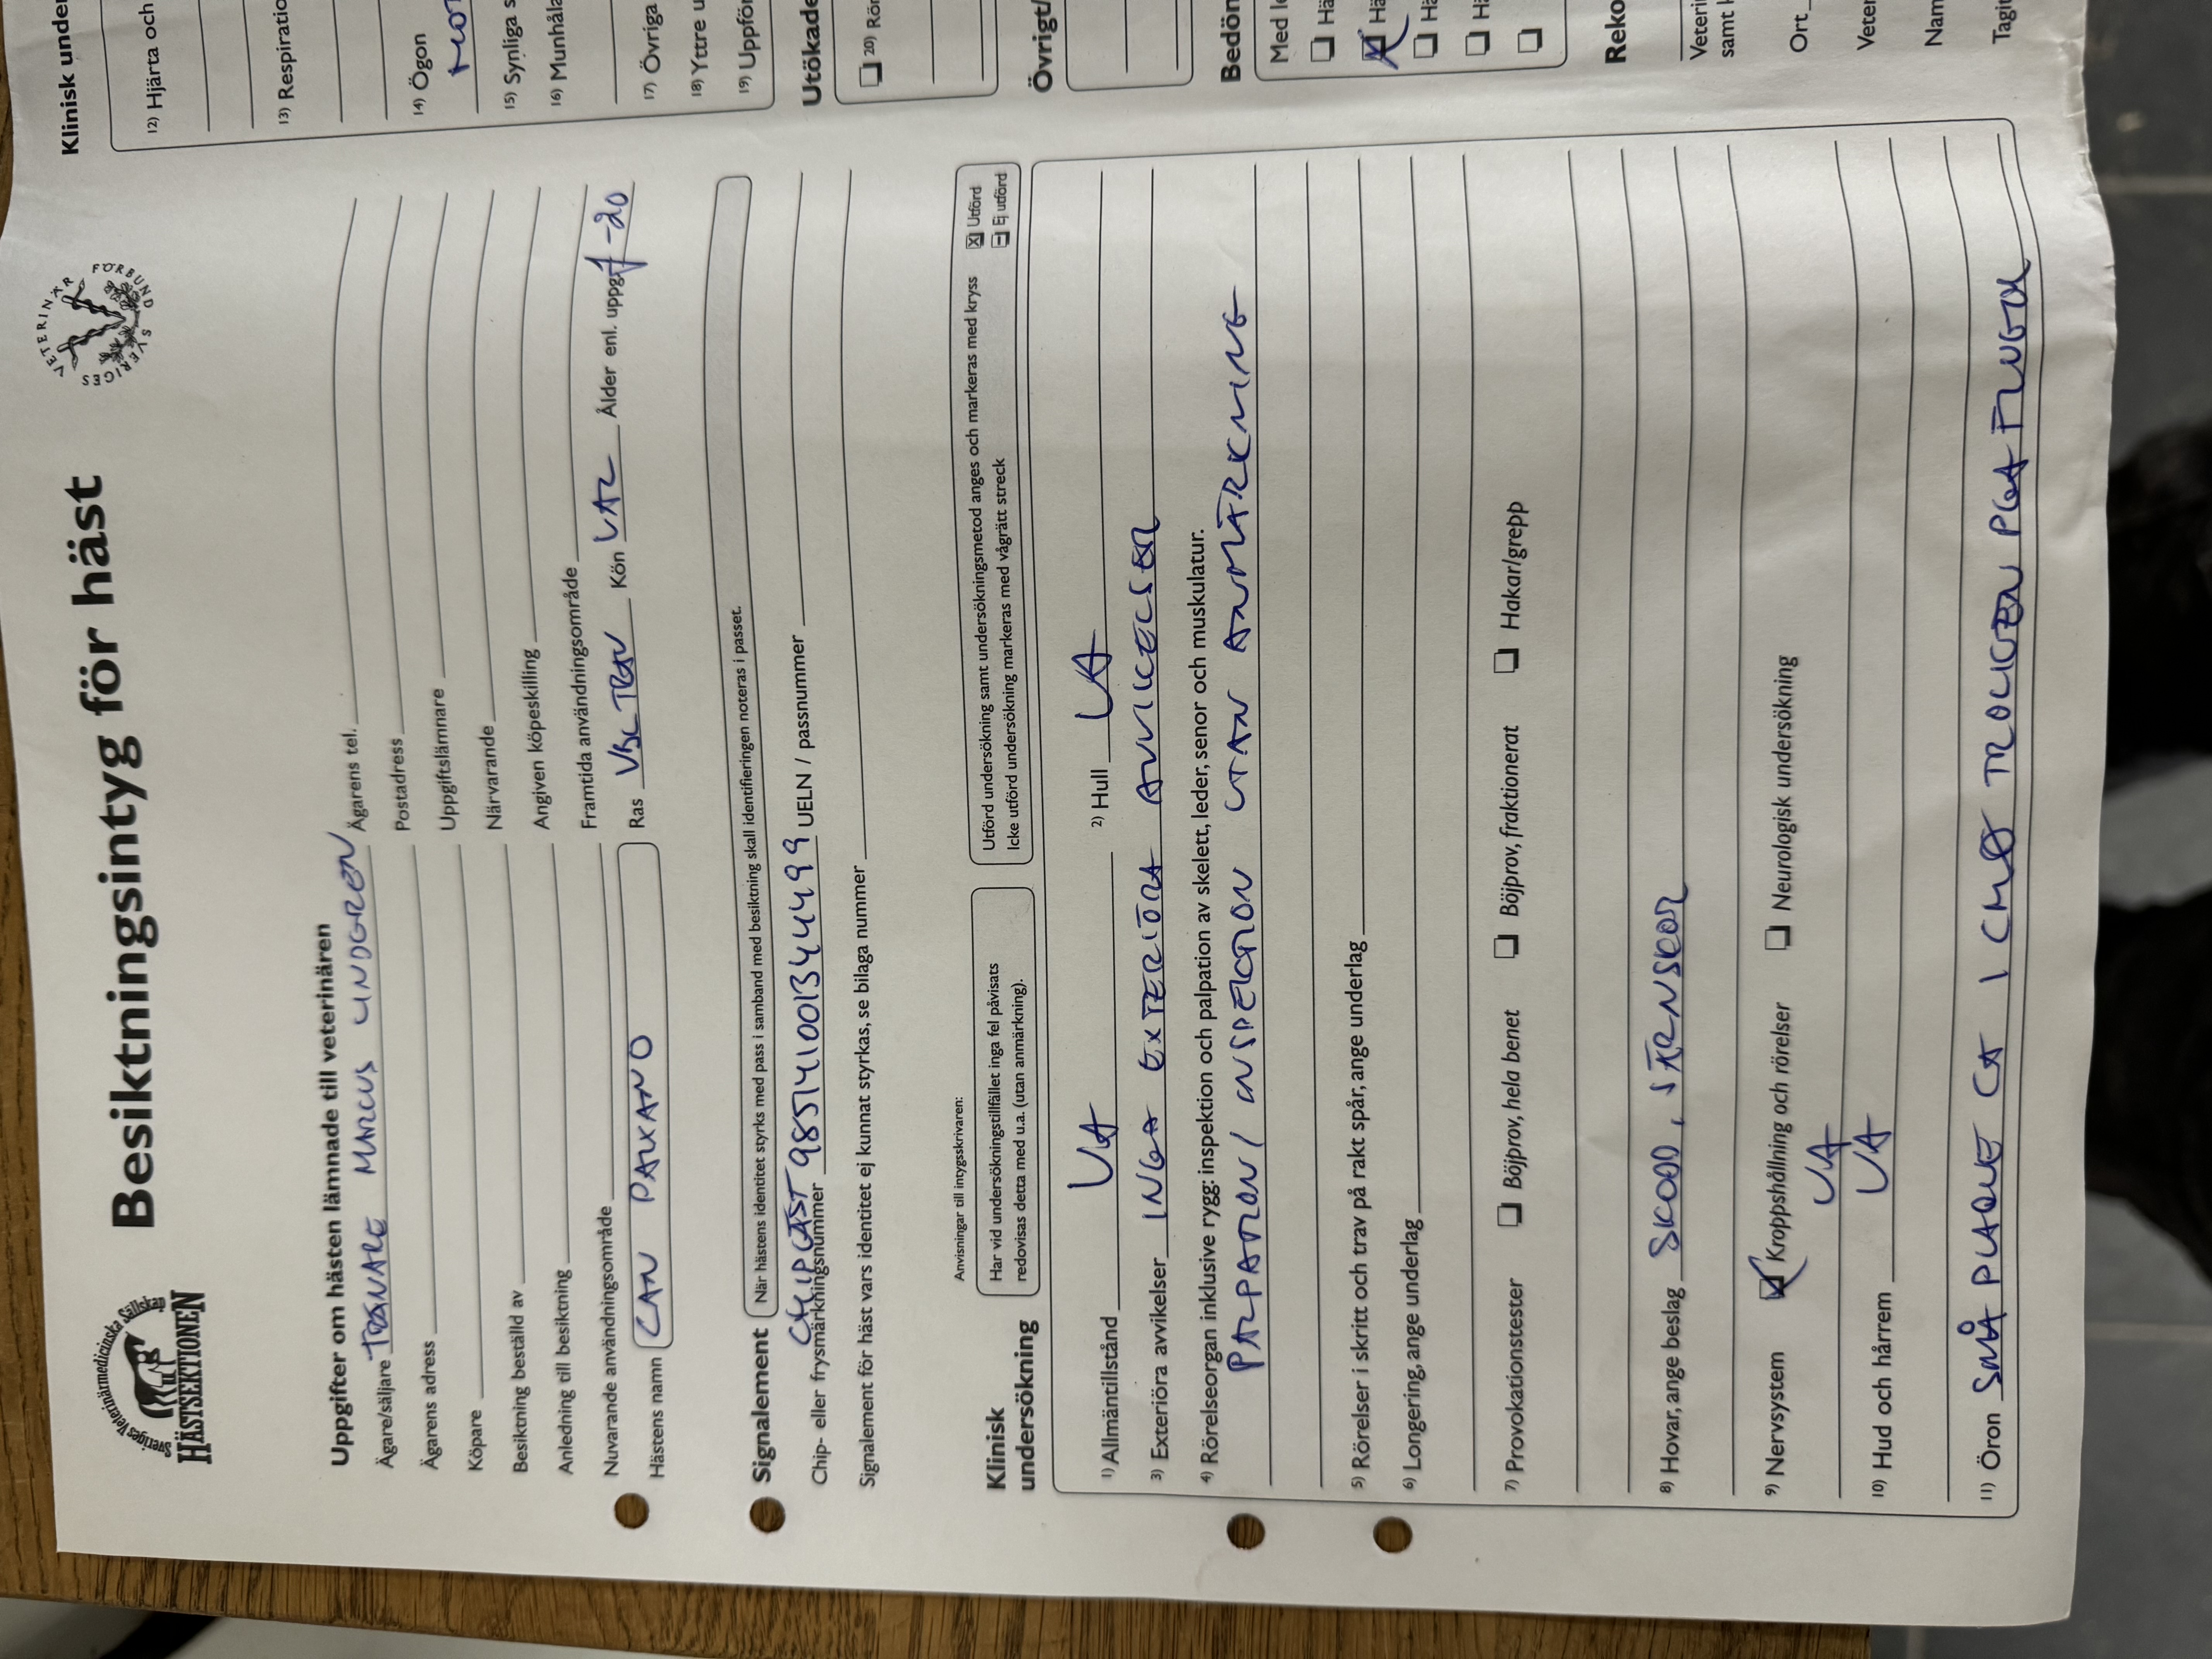 Sveriges Veterinärmedicinska Sällskap
HÄSTSEKTIONEN
Besiktningsintyg för häst
SVERIGES VETERINÄR FÖRBUND
Uppgifter om hästen lämnade till veterinären
Ägare/säljare TRÄNARE MARCUS LINDGREN Ägarens tel.
Ägarens adress Postadress
Köpare Uppgiftslämnare
Besiktning beställd av Närvarande
Anledning till besiktning Angiven köpeskilling
Nuvarande användningsområde Framtida användningsområde
Hästens namn CAN PAXANO Ras VBL TRAV Kön VAL Ålder enl. uppg. -20
Signalement När hästens identitet styrks med pass i samband med besiktning skall identifieringen noteras i passet.
CHIP LÄST
Chip- eller frysmärkningsnummer 985141001344499 UELN / passnummer
Signalement för häst vars identitet ej kunnat styrkas, se bilaga nummer
Anvisningar till intygsskrivaren:
Klinisk undersökning
Har vid undersökningstillfället inga fel påvisats
redovisas detta med u.a. (utan anmärkning).
Utförd undersökning samt undersökningsmetod anges och markeras med kryss Utförd
Icke utförd undersökning markeras med vågrätt streck Ej utförd
1) Allmäntillstånd UA 2) Hull UA
3) Exteriöra avvikelser INGA EXTERIÖRA AVVIKELSER
4) Rörelseorgan inklusive rygg: inspektion och palpation av skelett, leder, senor och muskulatur.
PALPATION / INSPEKTION UTAN ANMÄRKNING
5) Rörelser i skritt och trav på rakt spår, ange underlag
6) Longering, ange underlag
7) Provokationstester Böjprov, hela benet Böjprov, fraktionerat Hakar/grepp
8) Hovar, ange beslag SKODD, JÄRNSKOR
9) Nervsystem Kroppshållning och rörelser Neurologisk undersökning
UA
10) Hud och hårrem UA
11) Öron SMÅ PLAQUE CA 1 CM TROLIGEN PGA FLUGOR
Klinisk under
12) Hjärta och
13) Respiratio
14) Ögon
15) Synliga s
16) Munhåla
17) Övriga
18) Yttre u
19) Uppför
Utökade
20) Rör
Övrigt/
Bedön
Med le
Hä
Hä
Hä
Hä
Reko
Veteri
samt
Ort
Veter
Nam
Tagit